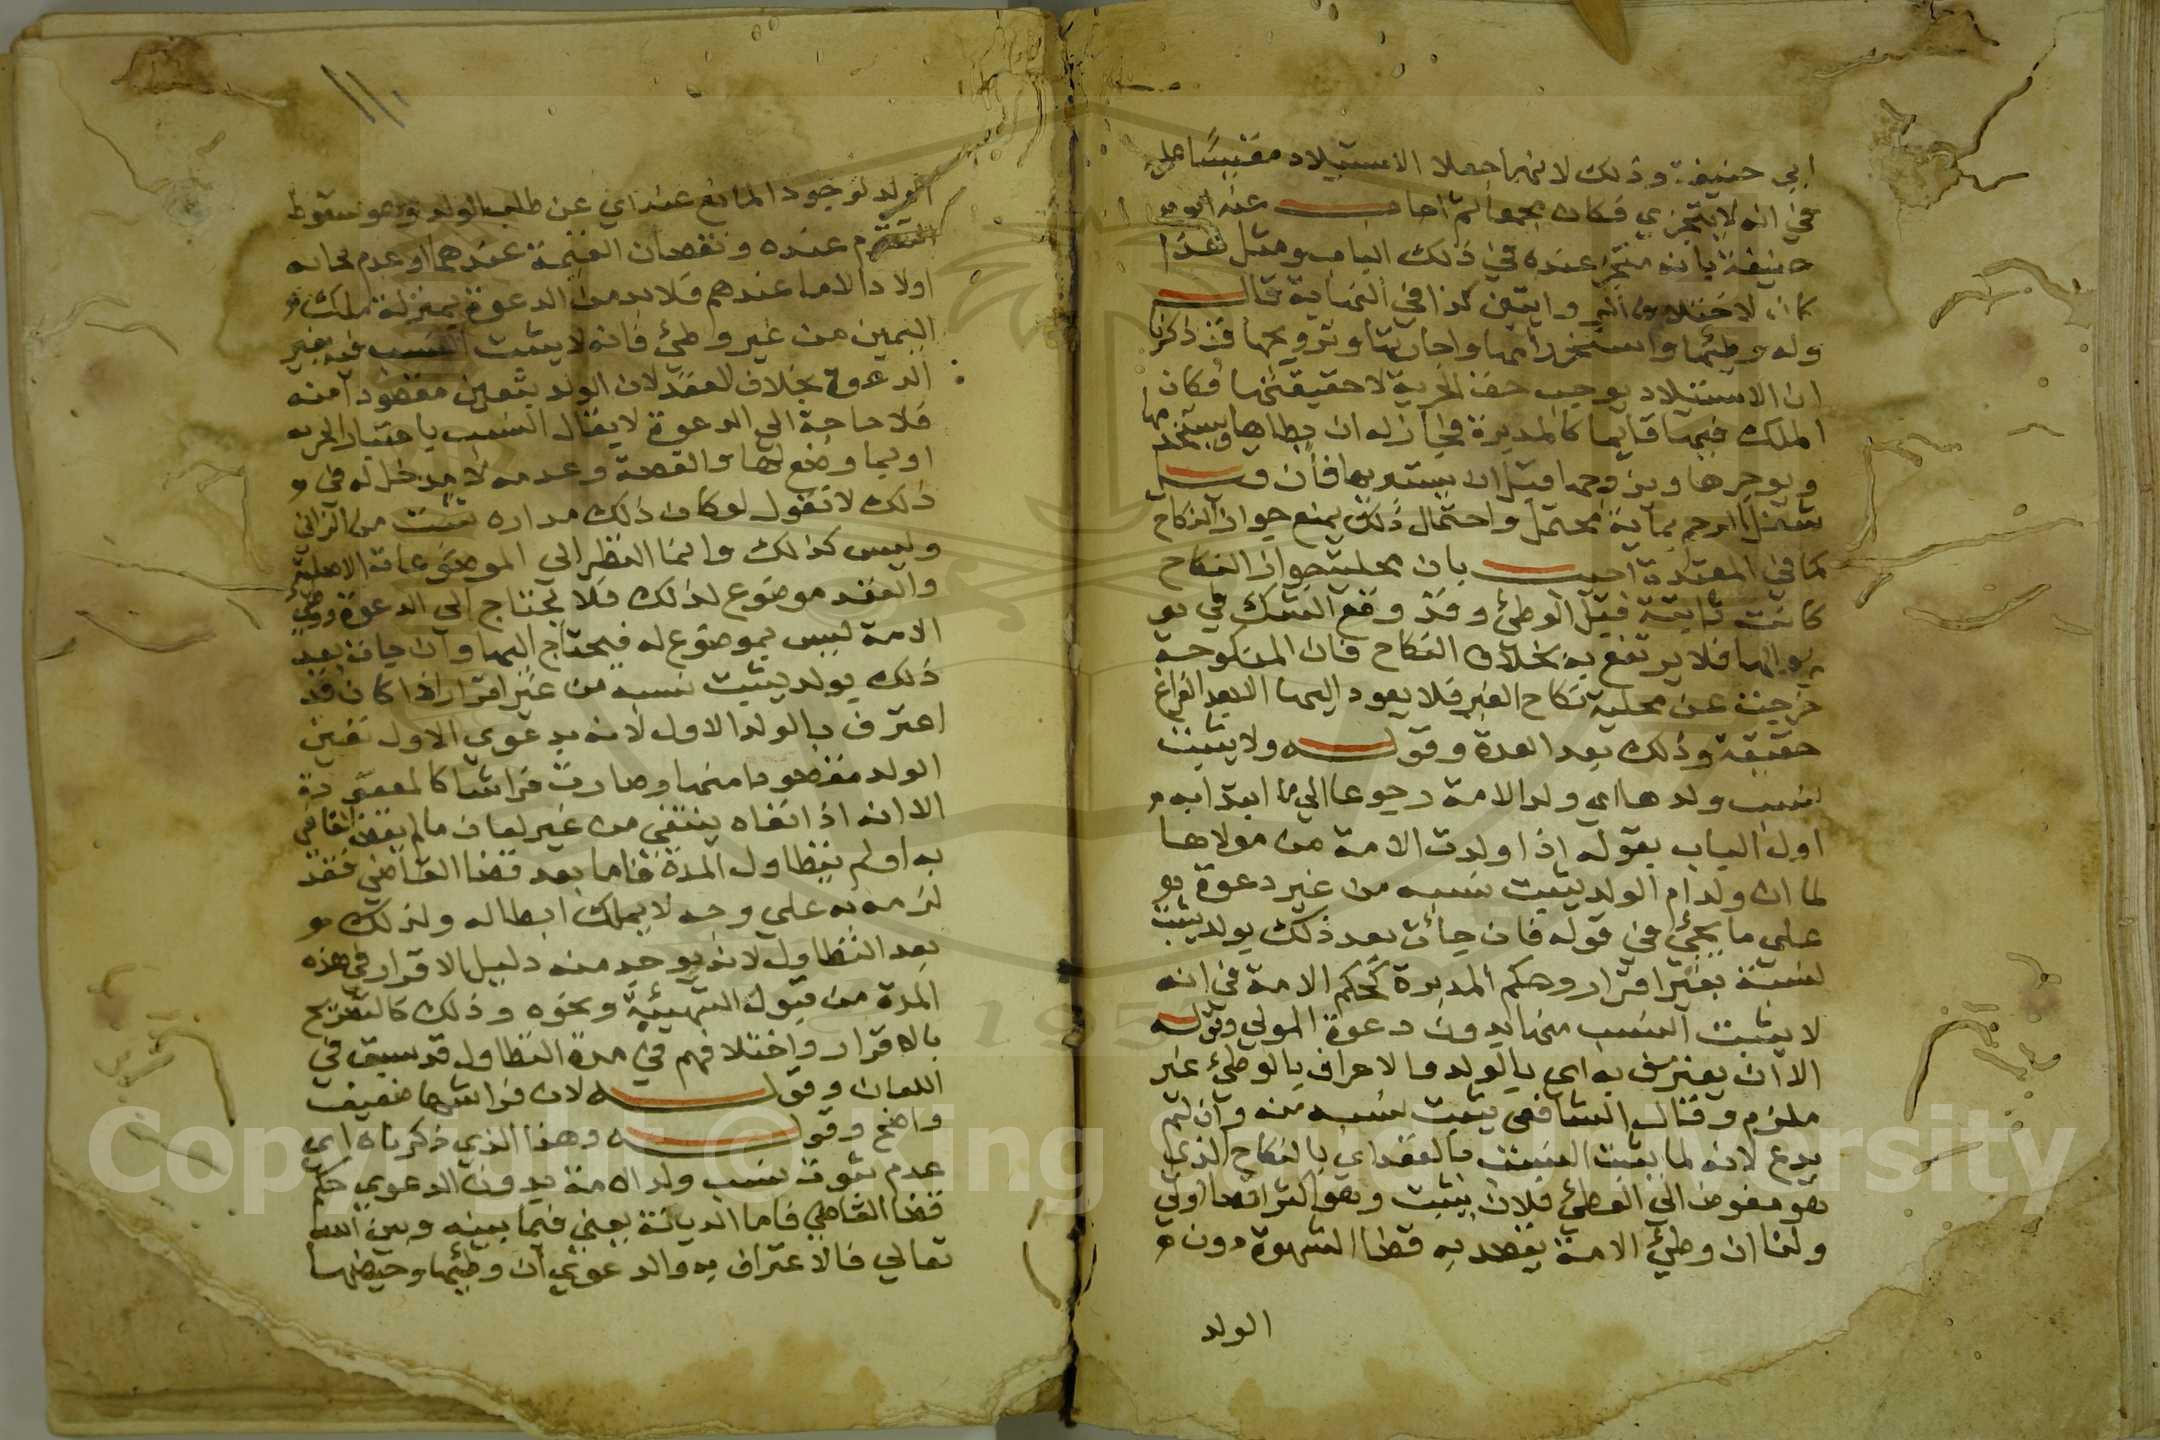 ابي حنيفة وذلك لانهما جعلا الاستيلاد مقيسا عليه
في انه لا يتجزي فكان مجمعا ثم اجاب عنه ابو
حنيفة بانه متجز عنده في ذلك الباب ومثل هذا
كان لاختلاف وايتين كذا في النهاية قال
وله وطئها واستخدامها واجارتها وتزويجها قد ذكرنا
ان الاستيلاد يوجب حق الحرية لا حقيقتها فكان
الملك فيها قايما كالمدبرة فجاز له ان يطاها ويستخدمها
ويوجرها ويزوجها قبل ان يستبريها فان قيل
شغل الرحم بمايه محتمل واحتمال ذلك يمنع جواز النكاح
كما في المعتدة اجيب بان محلية جواز النكاح
كانت ثابتة قبل الوطئ وقد وقع الشك في
زوالها فلا يرتفع به بخلاف النكاح فان المنكوحة
خرجت عن محلية نكاح الغير فلا يعود اليها الا بعد الفراغ
حقيقة وذلك بعد العدة وقوله ولا يثبت
نسب ولدها اي ولد الامة رجوعا الي ما ابتدا به
اول الباب بقوله اذا ولدت الامة من مولاها
لما ان ولد ام الولد يثبت نسبه من غير دعوة
علي ما يجئ في قوله فان جاءت بعد ذلك بولد يثبت
نسبه بغير اقرار وحكم المدبرة كحكم الامة في انه
لا يثبت النسب منها بدون دعوة المولي وقوله
الا ان يعترف به اي بالولد والاعراف بالوطئ غير
ملزم وقال الشافعي يثبت نسبه منه وان لم
يدع لانه لما يثبت النسب بالعقد اي بالنكاح الذي
هو مفوض الي الوطئ فلان يثبت وهو اكثر افضا اولي
ولنا ان وطئ الامة يقصد به قضا الشهوة دون
الولد
الولد لوجود المانع عنه اي عن طلب الولد وهو سقوط
التقوم عنده ونقصان القيمة عندهما او عدم نجابه
اولاد الاما عندهم فلا بد من الدعوة بمنزلة ملك
اليمين من غير وطئ فانه لا يثبت النسب فيه بغير
الدعوة بخلاف العقد لان الولد يتعين مقصودا منه
فلا حاجة الي الدعوة لا يقال النسب باعتبار الجزيه
او بما وضع لها والقصد وعدمه لا مدخل له في
ذلك لانا نقول لو كان ذلك مداره تثبت من الزاني
وليس كذلك وانما النظر الي الموضوعات الاصلية
والعقد موضوع لذلك فلا يحتاج الي الدعوة ووطئ
الامة ليس بموضوع له فيحتاج اليها وان جات بعد
ذلك بولد يثبت نسبه من غير اقرار اذا كان قد
اعترف بالولد الاول لانه بدعوي الاول تعين
الولد مقصودا منها وصارت فراشا كالمعقودة
الا انه اذا نفاه ينتفي من غير لعان ما لم يقض القاضي
به او لم يتطاول المدة فاما بعد قضا القاضي فقد
لزمه به علي وجه لا يملك ابطاله وكذلك
بعد التطاول لانه يوجد منه دليل الاقرار في هذه
المدة من قبول التهنئة ونحوه وذلك كالتصريح
بالاقرار واختلافهم في مدة التطاول قد سبق في
اللعان وقوله لان فراشها ضعيف
واضح وقوله وهذا الذي ذكرناه اي
عدم ثبوت نسب ولد الامة بدون الدعوي حكم
قضا القاضي فاما الديانة يعني فيما بينه وبين الله
تعالي فالاعتراف به والدعوي ان وطئها وحصنها
Copyright © King Saud University
195